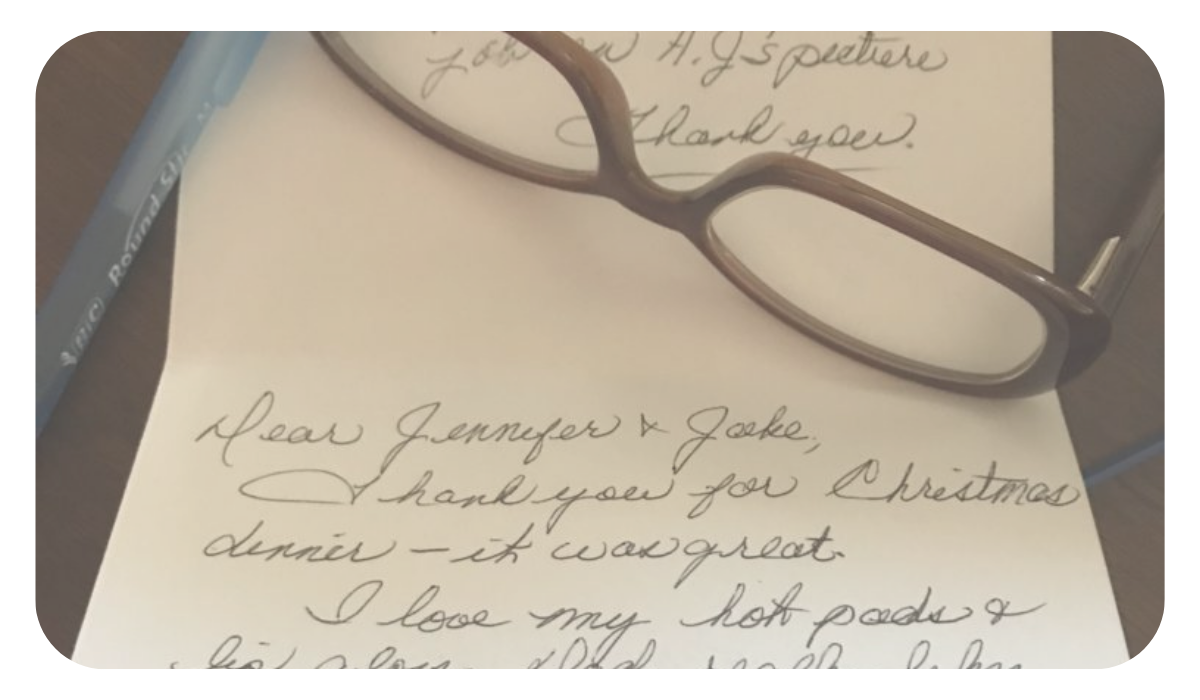 job on A.J's picture
Thank you.
BIC Round Stic M
Dear Jennifer & Jake,
Thank you for Christmas
dinner – it was great.
I love my hot pads &